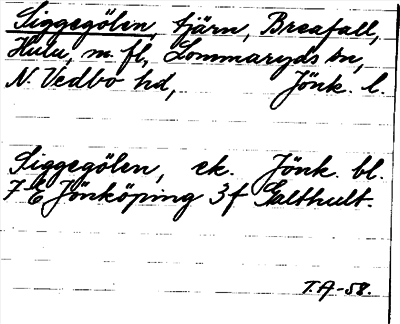 Siggegölen, tjärn, Breafall,
Hulu, m. fl., Lommaryds sn,
N. Vedbo hd, Jönk. l.
Siggegölen, ek. Jönk. bl.
7 E Jönköping 3f Galthult.
T.A-58.